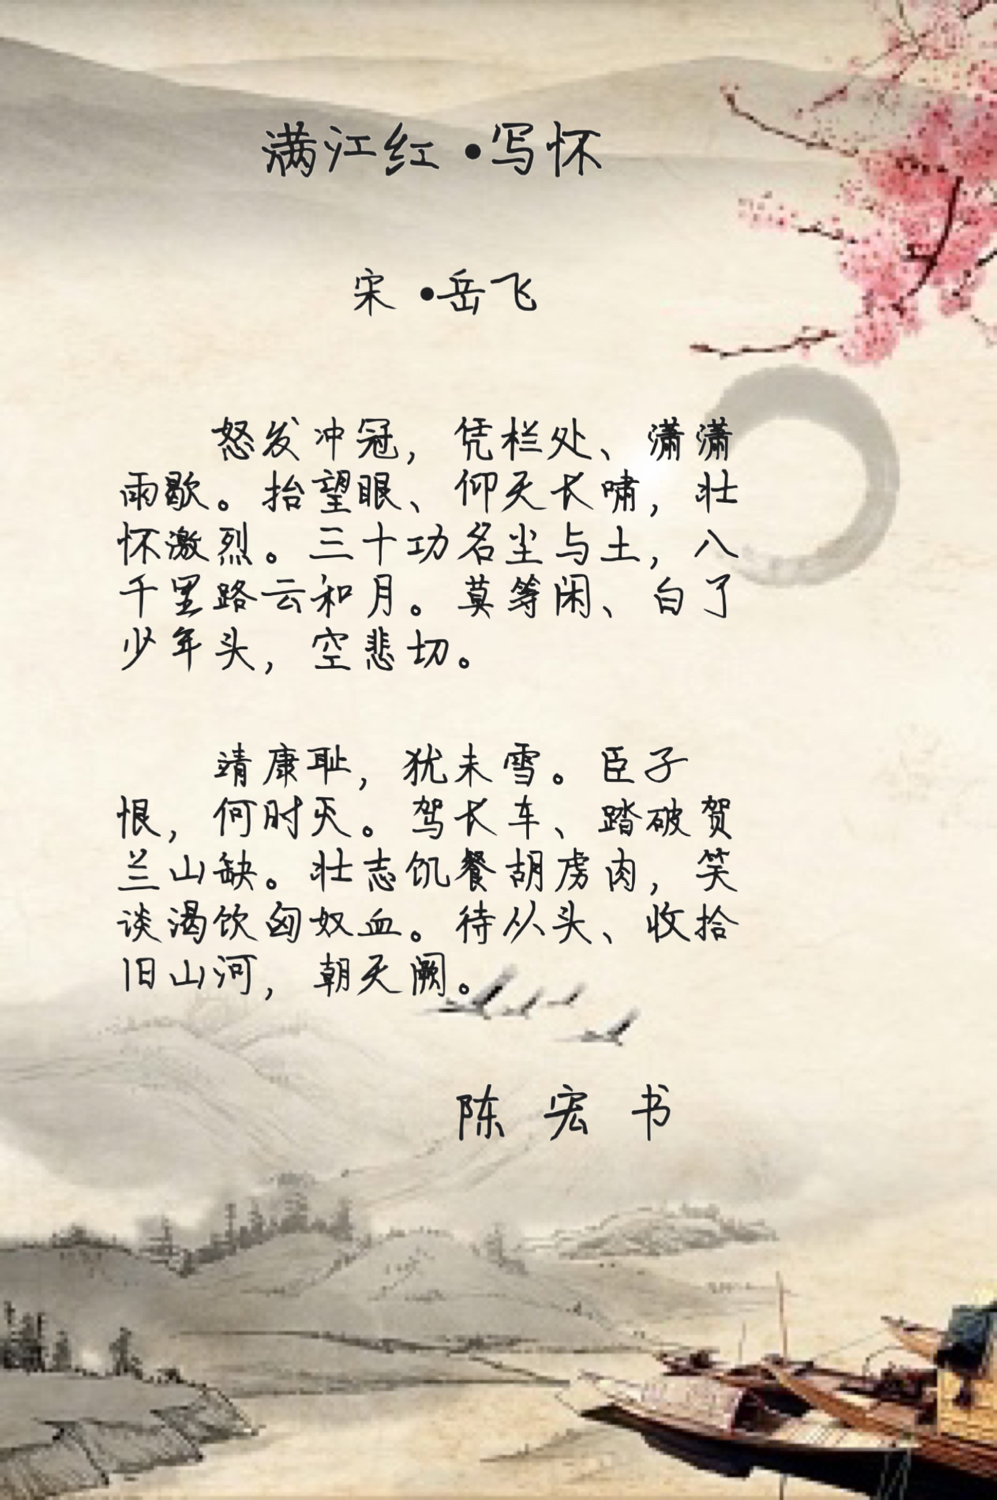 满江红·写怀
宋·岳飞
怒发冲冠，凭栏处、潇潇
雨歇。抬望眼、仰天长啸，壮
怀激烈。三十功名尘与土，八
千里路云和月。莫等闲、白了
少年头，空悲切。
靖康耻，犹未雪。臣子
恨，何时灭。驾长车、踏破贺
兰山缺。壮志饥餐胡虏肉，笑
谈渴饮匈奴血。待从头、收拾
旧山河，朝天阙。
陈宏书